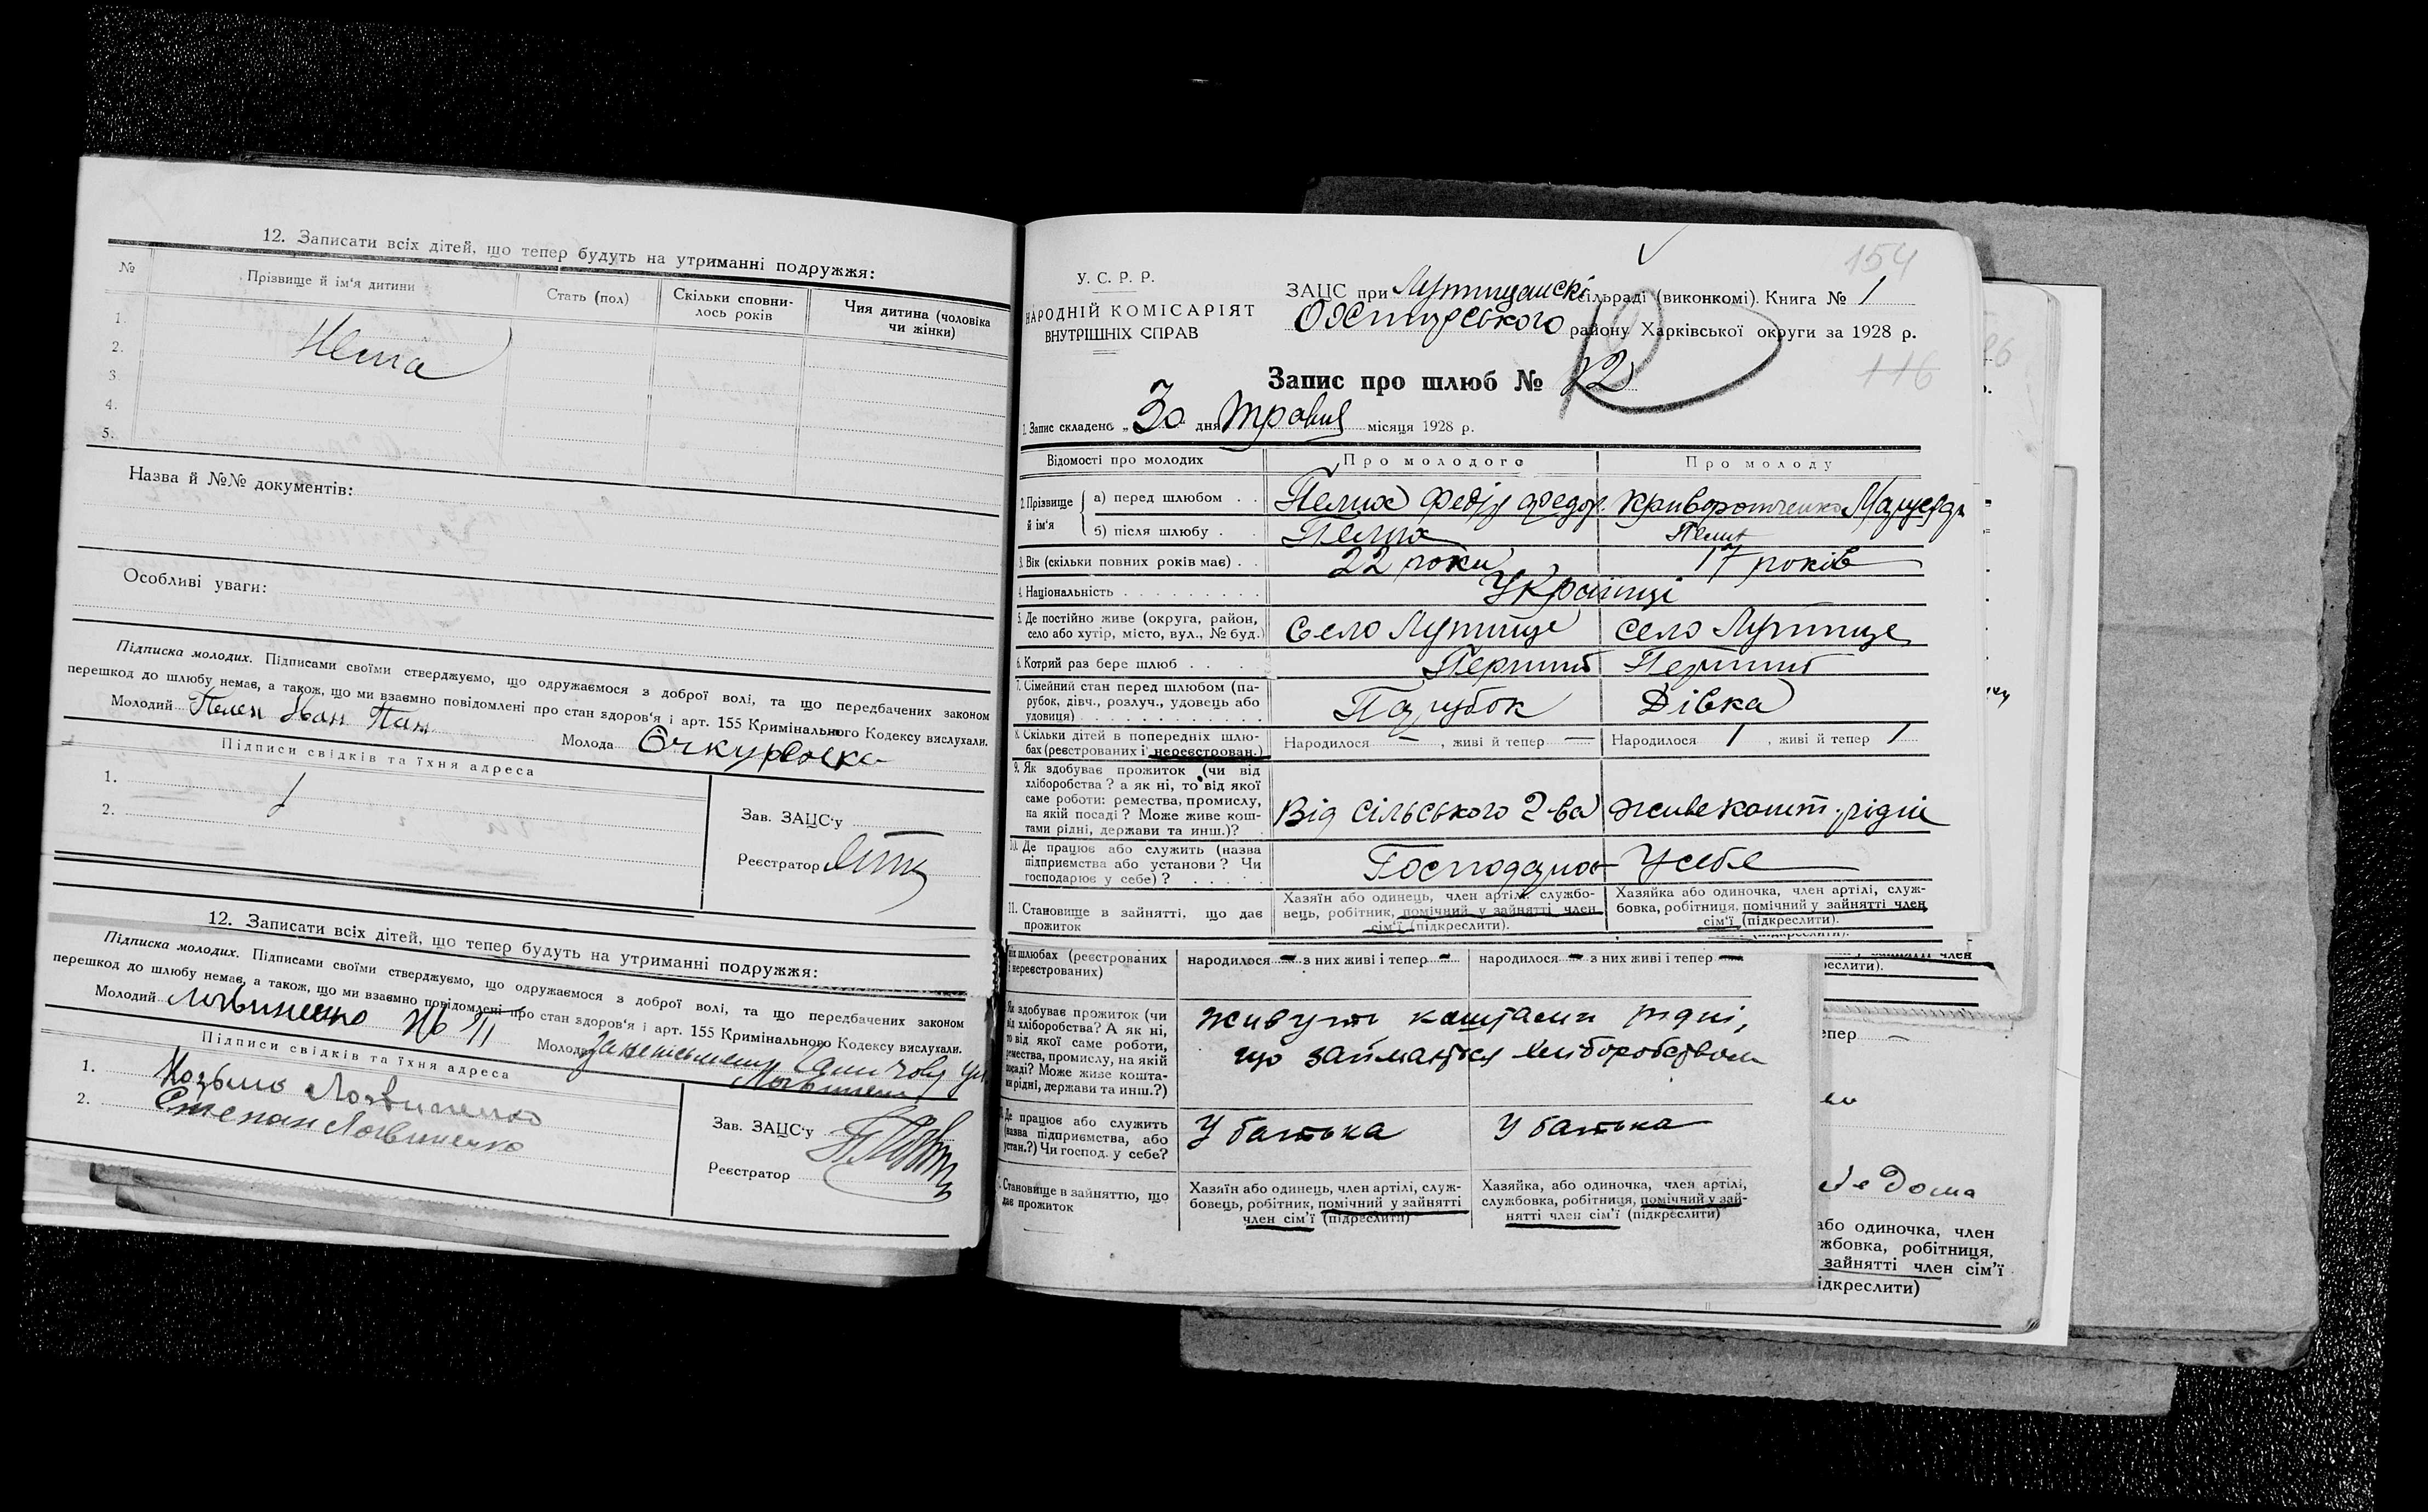 12. Записати всіх дітей, що тепер будуть на утриманні подружжя:
№ Прізвище й ім'я дитини Стать (пол) Скільки сповнилось років Чия дитина (чоловіка чи жінки)
1.
2. Нема
3
4.
5.
Назва й №№ документів:
Особливі уваги:
Підписка молодих. Підписами своїми стверджуємо, що одружаємося з доброї волі, та що передбачених законом
перешкод до шлюбу немає, а також, що ми взаємно повідомлені про стан здоров'я і арт. 155 Кримінального Кодексу вислухали.
Молодий Пелех Іван Молода
Підписи свідків та їхня адреса
1.
2.
Зав. ЗАЦС'у
Реєстратор
12. Записати всіх дітей, що тепер будуть на утриманні подружжя:
Підписка молодих. Підписами своїми стверджуємо, що одружаємося з доброї волі, та що передбачених законом
перешкод до шлюбу немає, а також, що ми взаємно повідомлені про стан здоров'я і арт. 155 Кримінального Кодексу вислухали.
Молодий Логвиненко Молода
Підписи свідків та їхня адреса
1. Козьма Логвиненко
2. Степан Логвиненко
Зав. ЗАЦС'у
Реєстратор
154
У. С. Р. Р.
НАРОДНІЙ КОМІСАРІЯТ
ВНУТРІШНІХ СПРАВ
ЗАЦС при Лутищанскі сільраді (виконкомі). Книга № 1
району Харківської округи за 1928 р.
116
Запис про шлюб № 12
1. Запис складено „30 дня Травня місяця 1928 р.
Відомості про молодих Про молодого Про молоду
2. Прізвище й ім'я
а) перед шлюбом . . Пелих Федір Федор.
б) після шлюбу . Пелих Пелих
3. Вік (скільки повних років має) . . 22 роки 17 років
4. Національність . . . . . . . . . Українці
5. Де постійно живе (округа, район,
село або хутір, місто, вул., № буд.) Село Лутище село Лутище
6. Котрий раз бере шлюб . . . Перший Перший
7. Сімейний стан перед шлюбом (парубок,
дівч., розлуч., удовець або
удовиця) . . . . . . . . . . . Парубок Дівка
8. Скільки дітей в попередніх шлюбах
(реєстрованих і нереєстрован.) Народилося — , живі й тепер — Народилося 1 , живі й тепер 1
9. Як здобуває прожиток (чи від
хліборобства? а як ні, то від якої
саме роботи: ремества, промислу,
на якій посаді? Може живе коштами
рідні, держави та инш.)? Від сільського г-ва живе кошт. рідні
10. Де працює або служить (назва
підприємства або установи? Чи
господарює у себе)? . . . . . Господарює У себе
11. Становище в зайнятті, що дає
прожиток
Хазяїн або одинець, член артілі, службовець,
робітник, помічний у зайнятті член
сім'ї (підкреслити).
Хазяйка або одиночка, член артілі, службовка,
робітниця, помічний у зайнятті член
сім'ї (підкреслити).
шлюбах (реєстрованих
і нереєстрованих) народилося — з них живі і тепер — народилося — з них живі і тепер —
Як здобуває прожиток (чи
від хліборобства? А як ні,
то від якої саме роботи,
ремества, промислу, на якій
посаді? Може живе коштами
рідні, держави та инш.?)
живуть коштами рідні,
що займається хліборобством
Де працює або служить
(назва підприємства, або
устан.?) Чи господ. у себе? У батька У батька
Становище в зайняттю, що
дає прожиток
Хазяїн або одинець, член артілі, службовець,
робітник, помічний у зайнятті
член сім'ї (підреслити)
Хазяйка, або одиночка, член артілі,
службовка, робітниця, помічний у зайнятті
член сім'ї (підкреслити)
член
реслити).
тепер —
Дома
або одиночка, член
жбовка, робітниця,
зайнятті член сім'ї
ідкреслити)